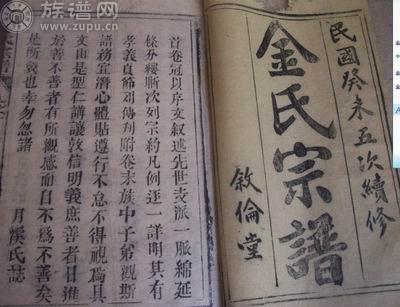 族谱网
www.zupu.cn
民國癸未五次續修
金氏宗譜
敘倫堂
首卷冠以序文敘述先世支派一脈綿延
條分縷晰次列宗約凡例逐一詳明其有
孝義貞節列傳刋附卷末族中子弟觀斯
譜務宜潛心體貼遵行不怠不得視為具
文由是型仁講讓敦信明義庶善者日進
於善不善者有所觀感而自不為不善矣
是所冀也幸勿忽諸
月溪氏誌